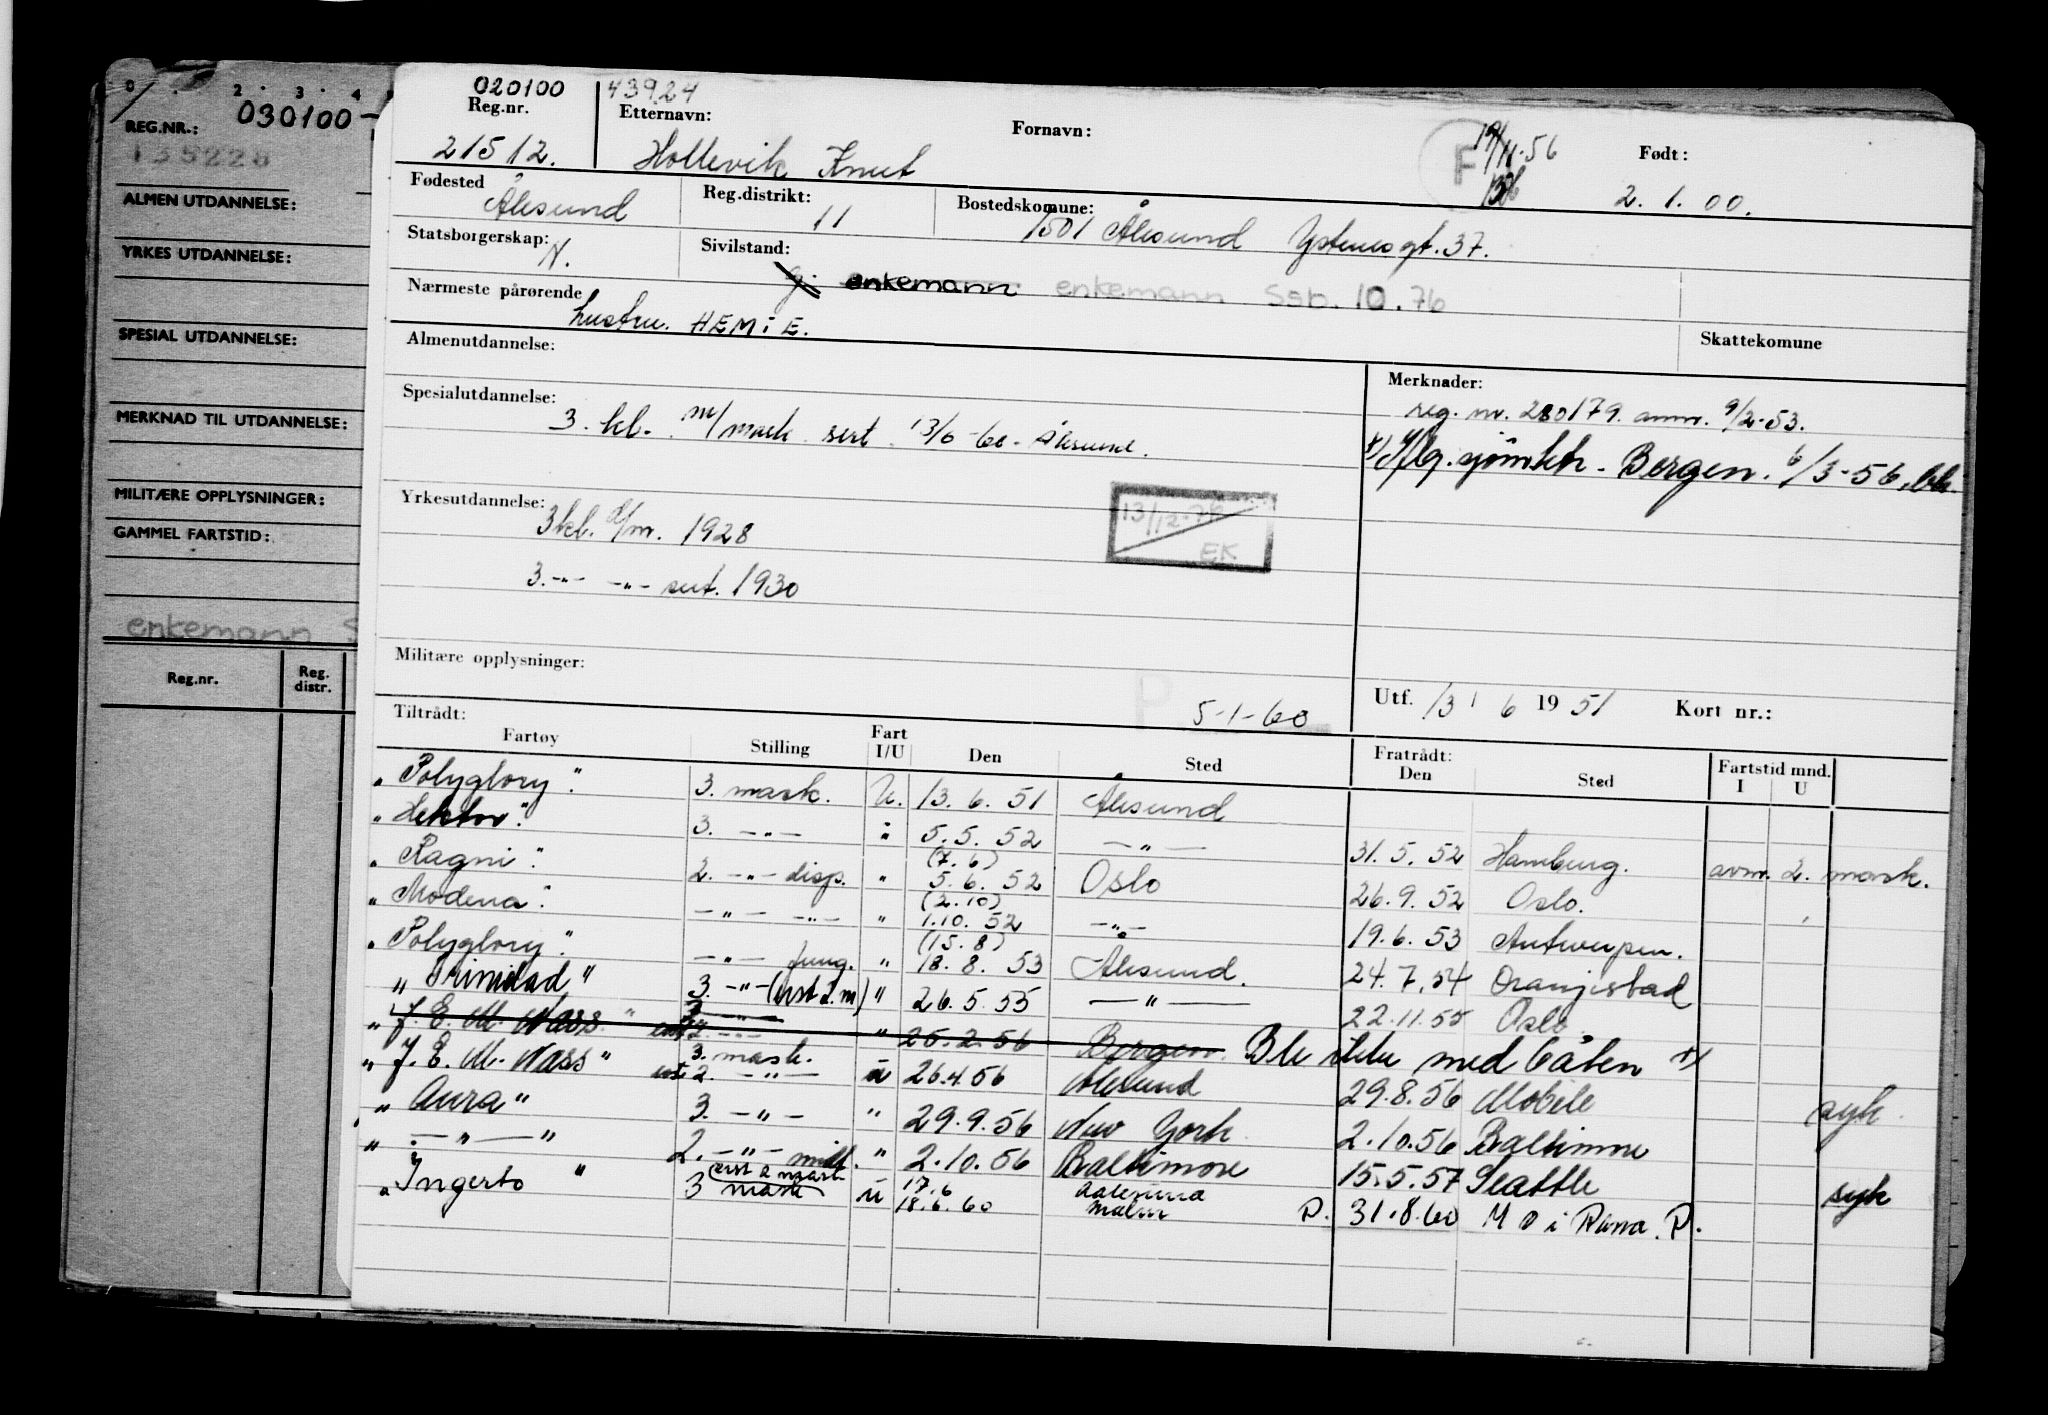 0 . 2 . 3 . 4
REG.NR.: 030100-
135228
ALMEN UTDANNELSE:
YRKES UTDANNELSE:
SPESIAL UTDANNELSE:
MERKNAD TIL UTDANNELSE:
MILITÆRE OPPLYSNINGER:
GAMMEL FARTSTID:
enkemann S
Reg.nr. Reg. distr.
020100 43924
Reg.nr. Etternavn: Fornavn: F 19/11-56 Født:
21512. Hollevik Knut 2.1.00.
Fødested Reg.distrikt: Bostedskomune:
Ålesund 11 1501 Ålesund Ystenesgt. 37.
Statsborgerskap: Sivilstand:
N. g. enkemann enkemann Ssb. 10.76
Nærmeste pårørende
hustru. HEMiE.
Skattekomune
Almenutdannelse: Merknader:
reg. nr. 280179. ann. 9/2-53.
Spesialutdannelse:
3. kl. m/mask. sert. 13/6-60- Ålesund.
x) Iflg. sjømktr. Bergen. 6/3-56,
Yrkesutdannelse:
3 kl. d/m. 1928
3. -"- -"- sert. 1930
13/12-76 EK
Militære opplysninger:
P 5-1-60
Utf. 13 / 6 1951 Kort nr.:
Tiltrådt: Fratrådt:
Fartøy Stilling Fart I/U Den Sted Den Sted Fartstid mnd. I U
"Polyglory". 3. mask. U. 13.6.51 Ålesund
"Hektor". 3. -"- " 5.5.52 -"- 31.5.52 Hamburg. avm. 2. mask.
"Ragni". 2. -"- disp. " (7.6) 5.6.52 Oslo 26.9.52 Oslo.
"Modena". -"- -"- " (2.10) 1.10.52 -"- 19.6.53 Antwerpen.
"Polyglory". -"- fung. " (15.8) 18.8.53 Ålesund. 24.7.54 Oranjestad
"Trinidad" 3. -"- (erst 2.m) " 26.5.55 -"- 22.11.55 Oslo.
"J. E. M. Næss" erst 2. -"- " 25.2.56 Bergen. Ble ikke med båten x)
"J. E. M. Næss" 3. mask. erst 2. -"- u 26.4.56 Ålesund 29.8.56 Mobile syk.
"Aura" 3. -"- " 29.9.56 New York 2.10.56 Baltimore
" -"- " 2. -"- midl. " 2.10.56 Baltimore 15.5.57 Seattle syk
"Ingerto" 3 mask erst 2 mask u 17.6 18.6.60 Aalesund Malm P. 31.8.60 M o i Rana. P.